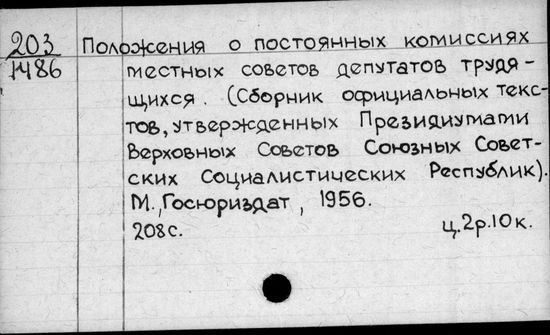 203 Положения о постоянных комиссиях
1486 местных советов депутатов трудя-
щихся. (Сборник официальных текс-
тов, утвержденных Президиумами
Верховных Советов Союзных Совет-
ских Социалистических Республик).
М., Госюриздат, 1956.
208с. ц.2р.10к.